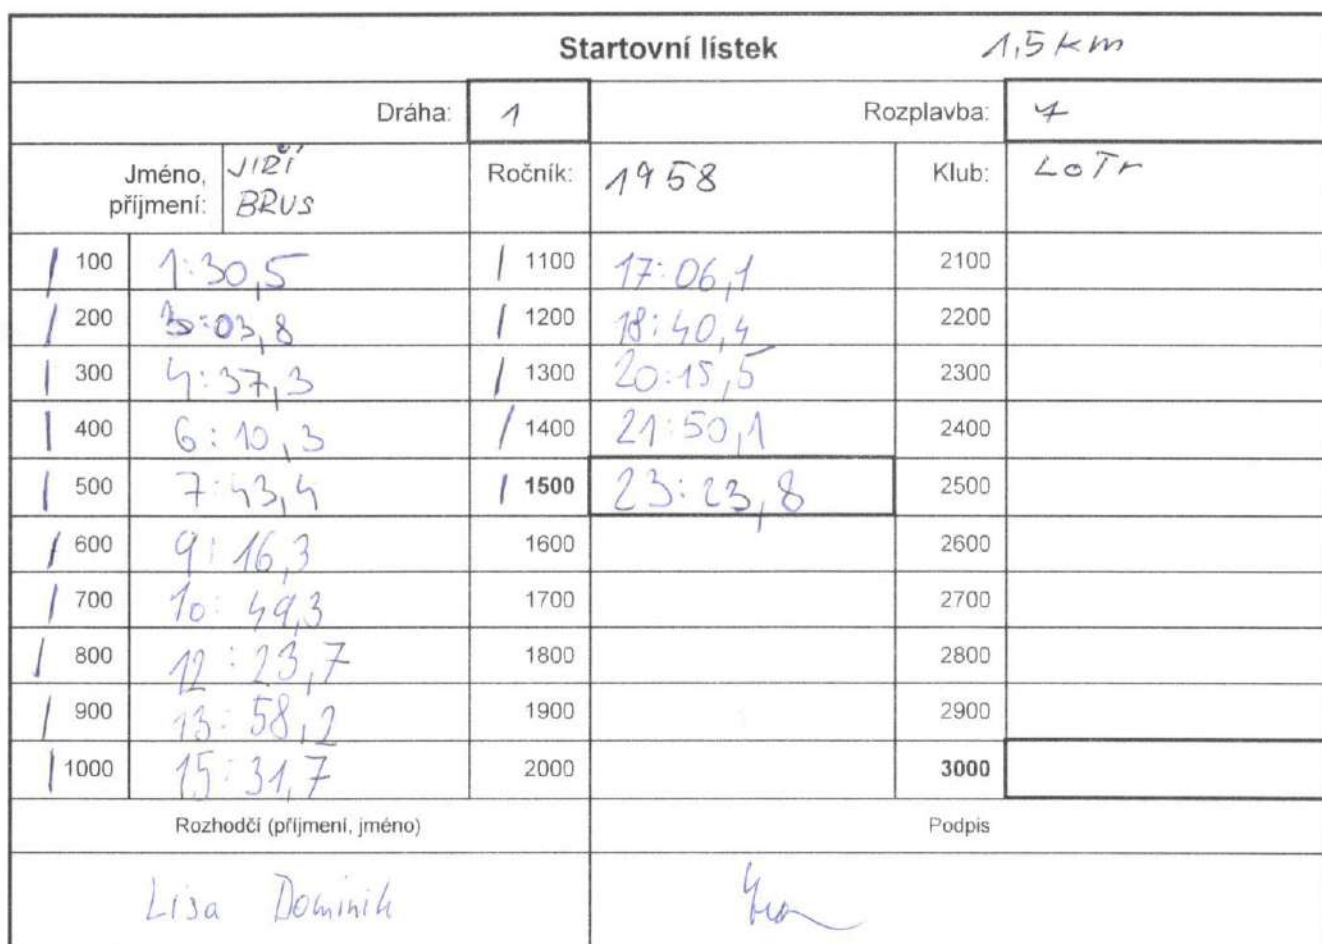 Startovní lístek 1,5 km
Dráha: 1 Rozplavba:
Jméno, příjmení: JIŘÍ BRUS Ročník: 1958 Klub: LoTr
/ 100 1:30,5 / 1100 17:06,1 2100
/ 200 3:03,8 / 1200 18:40,4 2200
/ 300 4:37,3 / 1300 20:15,5 2300
/ 400 6:10,3 / 1400 21:50,1 2400
/ 500 7:43,4 / 1500 23:23,8 2500
/ 600 9:16,3 1600 2600
/ 700 10:49,3 1700 2700
/ 800 12:23,7 1800 2800
/ 900 13:58,2 1900 2900
/ 1000 15:31,7 2000 3000
Rozhodčí (příjmení, jméno) Podpis
Lisa Dominik